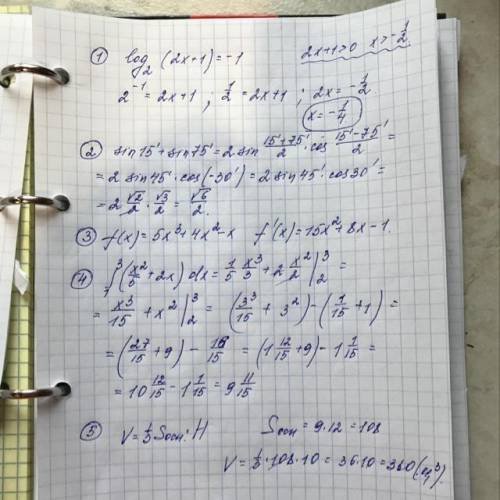 ① log₂ (2x+1) = -1    2x+1>0  x>-1/2
2⁻¹ = 2x+1 ; 1/2 = 2x+1 ; 2x = -1/2
x = -1/4
② sin15'+sin75' = 2sin (15'+75')/2 · cos (15'-75')/2 =
= 2 sin45'·cos(-30') = 2 sin45'·cos30' =
= 2 √2/2 · √3/2 = √6/2.
③ f(x) = 5x³+4x²-x    f'(x) = 15x²+8x-1.
④ ∫₁³ (x²/5 + 2x) dx = 1/5 x³/3 + 2 x²/2 |₂³ =
= x³/15 + x² |₂³ = (3³/15 + 3²) - (1/15 + 1) =
= (27/15 + 9) - 16/15 = (1 12/15 + 9) - 1 1/15 =
= 10 12/15 - 1 1/15 = 9 11/15
⑤ V = 1/3 Sосн · H    Sосн = 9·12 = 108
V = 1/3 · 108 · 10 = 36·10 = 360 (см³).